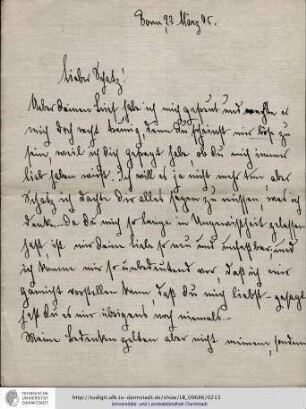 Bonn, 93. März 05.
Lieber Schatz!
Ueber deinen Brief habe ich mich gefreut und machte er
mich doch recht traurig, denn du scheinst mir böse zu
sein, weil ich dich gefragt habe ob du mich immer
lieb haben wirst. Ich will es ja nicht mehr tun aber
Schatz ich dachte dir alles sagen zu müssen, was ich
denke. Da du mich so lange in Ungewissheit gelassen
hast, ist mir deine Liebe so neu und unfassbar, und
ich komme mir so unbedeutend vor, daß ich mir
garnicht vorstellen kann, daß du mich liebst - gesagt
hast du es mir übrigens noch niemals.-
Meine Bedenken gelten aber nicht meinen, sondern
TECHNISCHE
UNIVERSITÄT
DARMSTADT
http://tudigit.ulb.tu-darmstadt.de/show/LB_09686/0213
Universitäts- und Landesbibliothek Darmstadt